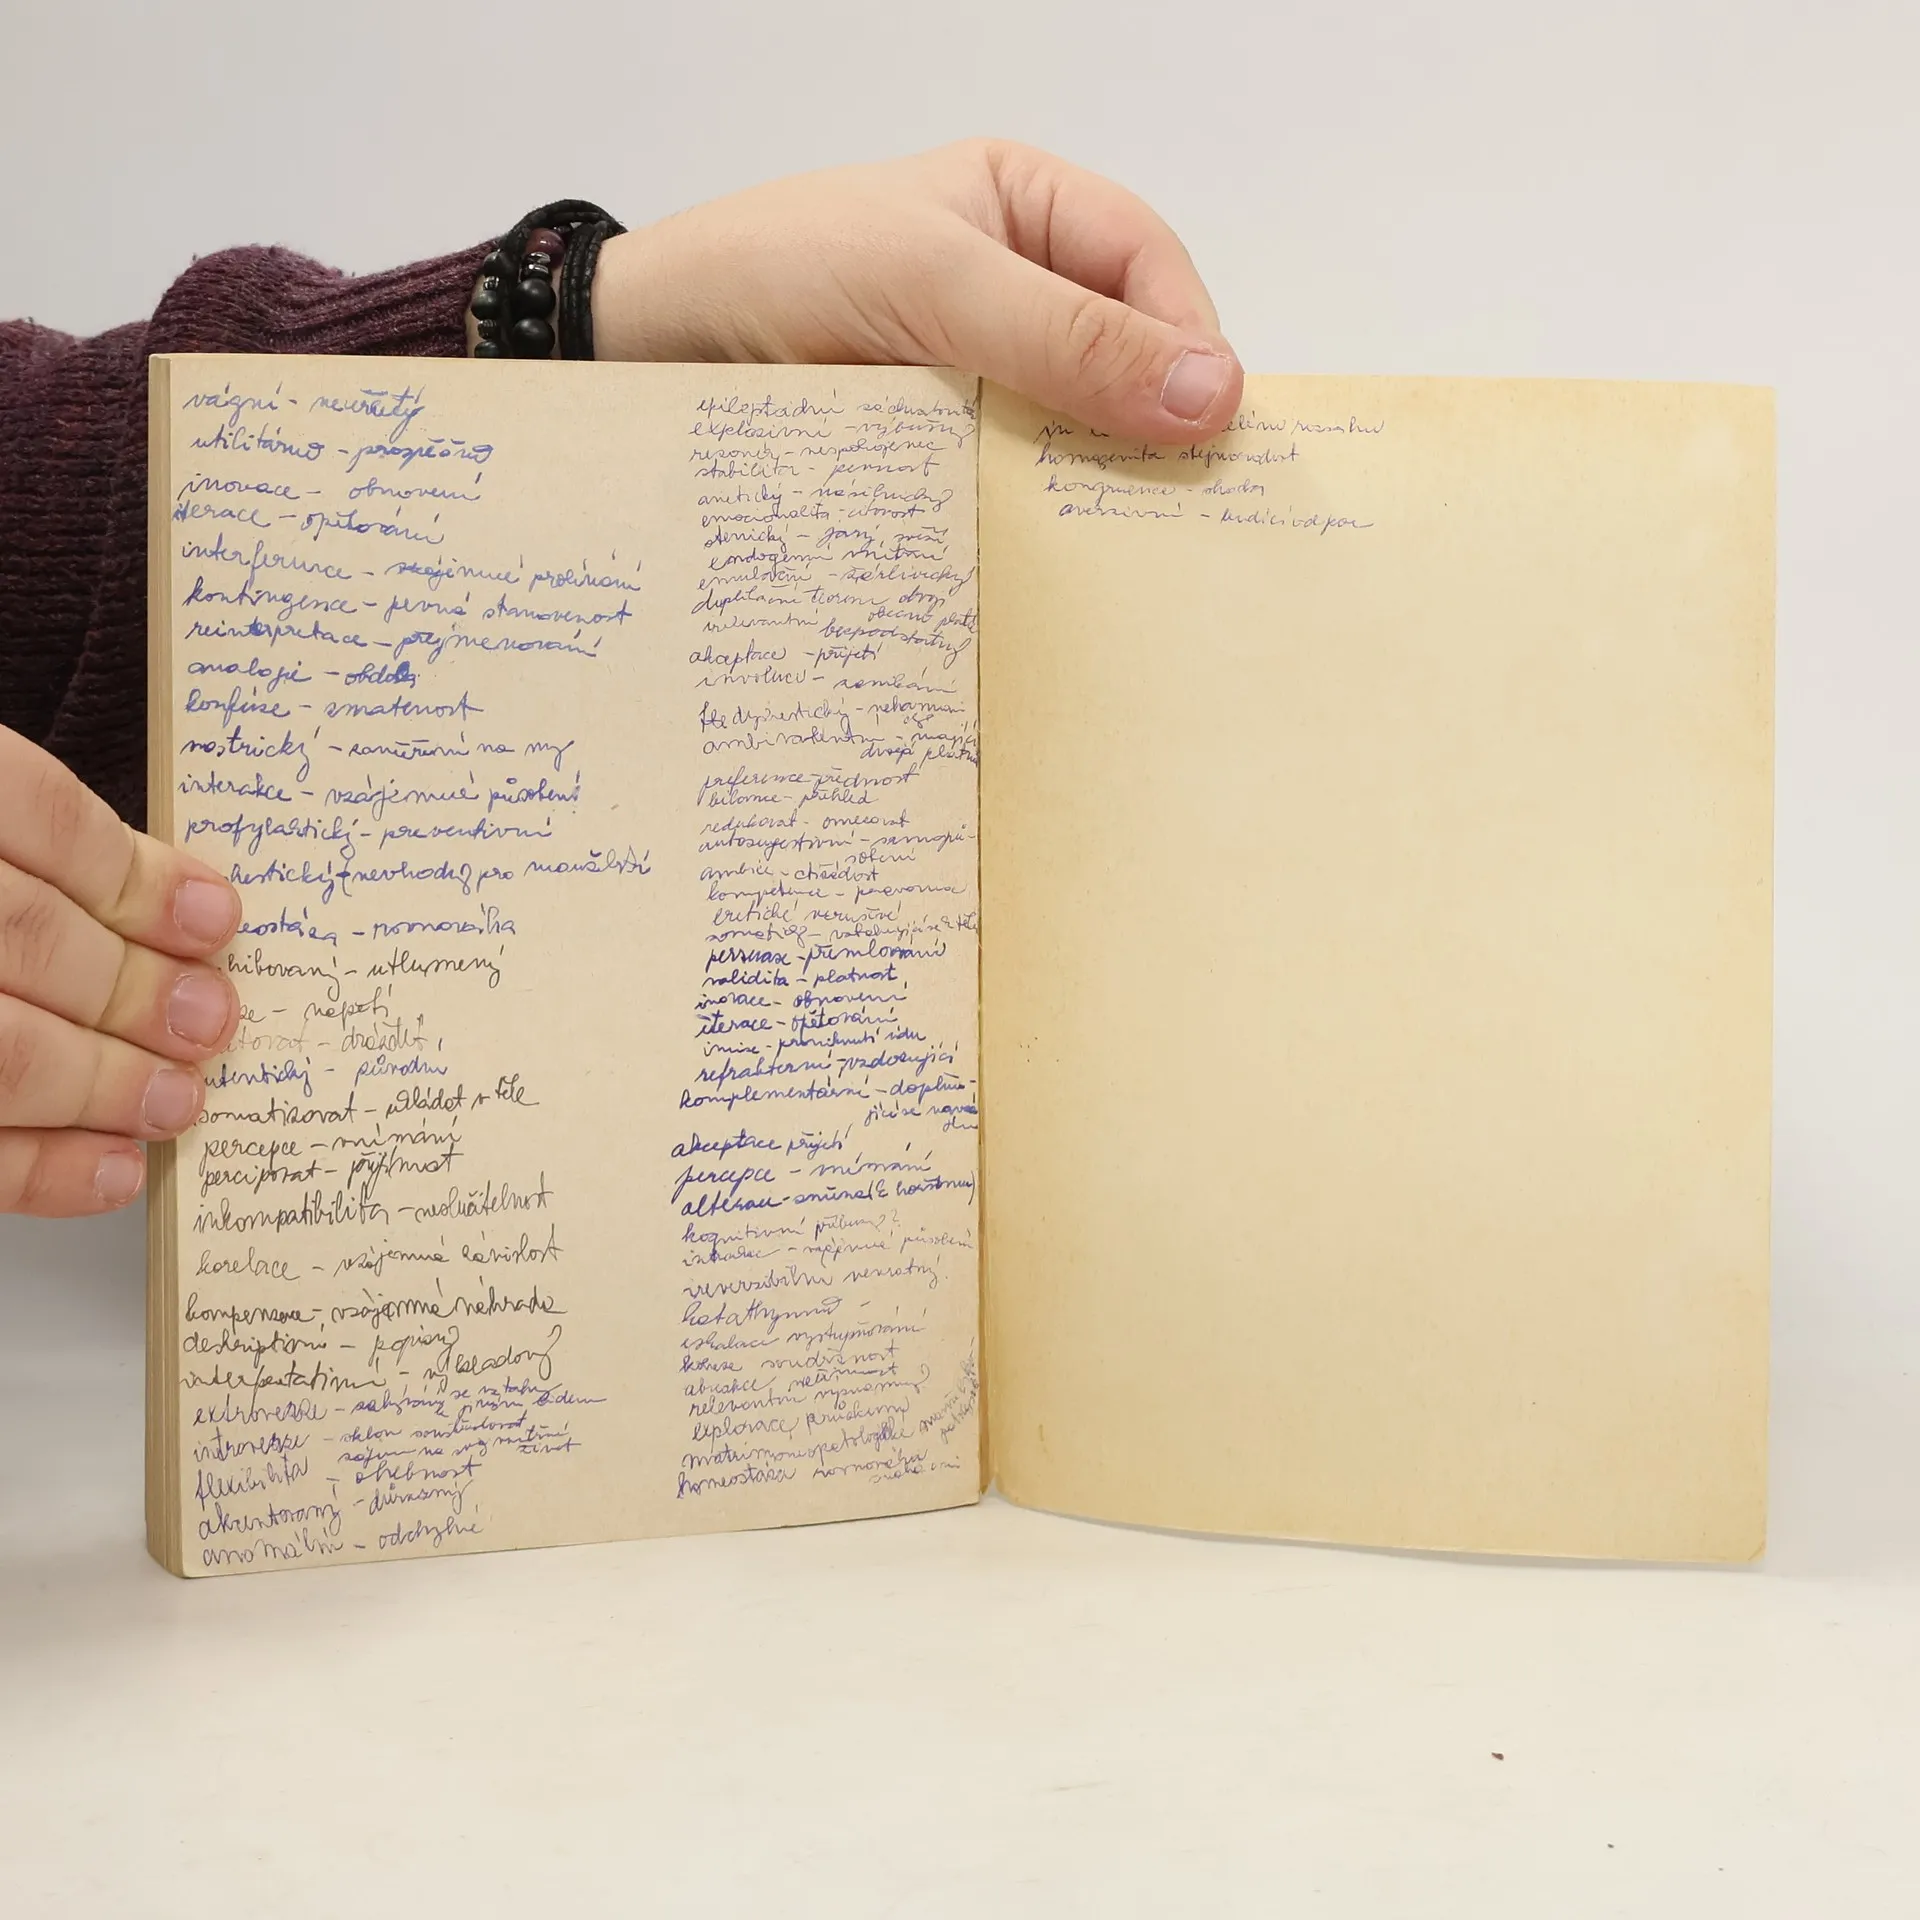 vágní - neurčitý
utilitární - prospěšný
inovace - obnovení
iterace - opětování
interference - vzájemné prolínání
kontingence - pevná stanovenost
reinterpretace - přejmenování
analogie - obdoba
konfúze - zmatenost
nostrický - zaměření na my
interakce - vzájemné působení
profylaktický - preventivní
nevhodný pro manželství
rovnováha
utlumený
- napětí
- dráždit
- původní
somatizovat - vkládat v těle
percepce - vnímání
percipovat - přijímat
inkompatibilita - neslučitelnost
korelace - vzájemná závislost
kompenzace - vzájemná náhrada
deskriptivní - popisný
interpretativní - výkladový
extroverze - se vztahy
k jiným lidem
introverze - sklon soustřeďovat
zájem na svůj vnitřní
život
flexibilita - ohebnost
akcentovaný - důrazný
anomální - odchylné
epileptoidní záchvatovitá
explozivní - výbušný
rezonér - nespokojenec
stabilita - pevnost
anetický - násilnický
emocionalita - citovost
stenický - jasný, svěží
endogenní vnitřní
emulační - žárlivecký
duplikační teorém dvojí
obecně platí
irelevantní bezpodstatný
akceptace - přijetí
involuce - zanikání
ambivalentní - mající
dvojí platnost
preference - přednost
bilance - přehled
redukovat - omezovat
autosugestivní - samopů-
sobení
ambice - ctižádost
kompetence - pravomoc
eretické vzrušivé
somatický - vztahující se k tělu
persuaze - přemlouvání
validita - platnost
inovace - obnovení
iterace - opětování
imise - proniknutí jedu
refrakterní - vzdorující
komplementární - doplňu-
jící se navzá
jem
akceptace přijetí
percepce - vnímání
alterace - změna (k horšímu)
kognitivní
interakce - vzájemné působení
ireverzibilní nevratný
katathymní -
eskalace vystupňování
koheze soudržnost
abreakce
relevantní významný
explorace průzkum
homeostáza rovnováha
homogenita stejnorodost
kongruence - shoda
averzivní - budící odpor